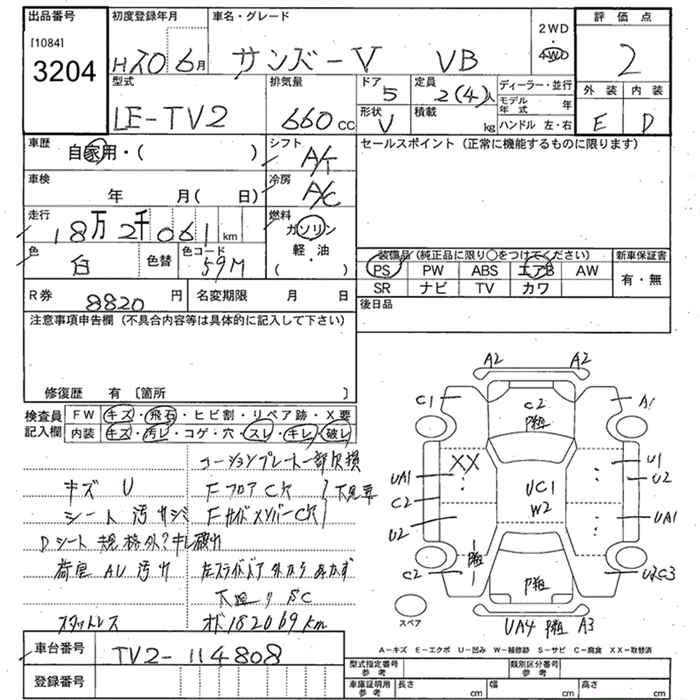 出品番号 初度登録年月 車名・グレード 2WD 評価点
[1084] 3204 H20 6月 サンバーV VB 4WD 2
型式 排気量 ドア 定員 ディーラー・並行 外装 内装
LE-TV2 660cc 5 2(4)人 モデル年式 年 E D
形状 V 積載 kg ハンドル 左・右
車歴 自家用・( ) シフト A/T セールスポイント (正常に機能するものに限ります)
車検 年 月( 日) 冷房 A/C
走行 18万2千061km 燃料 ガソリン 軽・油 ( )
色 白 色替 色コード 59M
装備品 (純正品に限り〇をつけてください) 新車保証書
PS PW ABS エアB AW 有・無
SR ナビ TV カワ
R券 8820円 名変期限 月 日 後日品
注意事項申告欄 (不具合内容等は具体的に記入して下さい)
修復歴 有 〔箇所 〕
検査員記入欄 FW キズ・飛石・ヒビ割・リペア跡・X要
内装 キズ・汚レ・コゲ・穴・スレ・キレ・破レ
コーションプレート一部欠損
キズ U FフロアC穴
シート汚サシミ FサイドメンバーC穴
Dシート規格外?キレ破れ
荷室AU汚れ 左スライドドア外から
下廻りSC
スタッドレス オド182069km
A2 A2
C1 C2 P箱 A1
XX U1
UA1 UC1 U2
C2 W2
U2 UA1
C2 P箱 P箱 U2C3
スペア UA4 P箱 A3
車台番号 TV2-114808
A-キズ E-エクボ U-凹み W-補修跡 S-サビ C-腐食 XX-取替済
登録番号
型式指定番号 参考 類別区分番号 参考
車庫証明用 参考 長さ cm 幅 cm 高さ cm